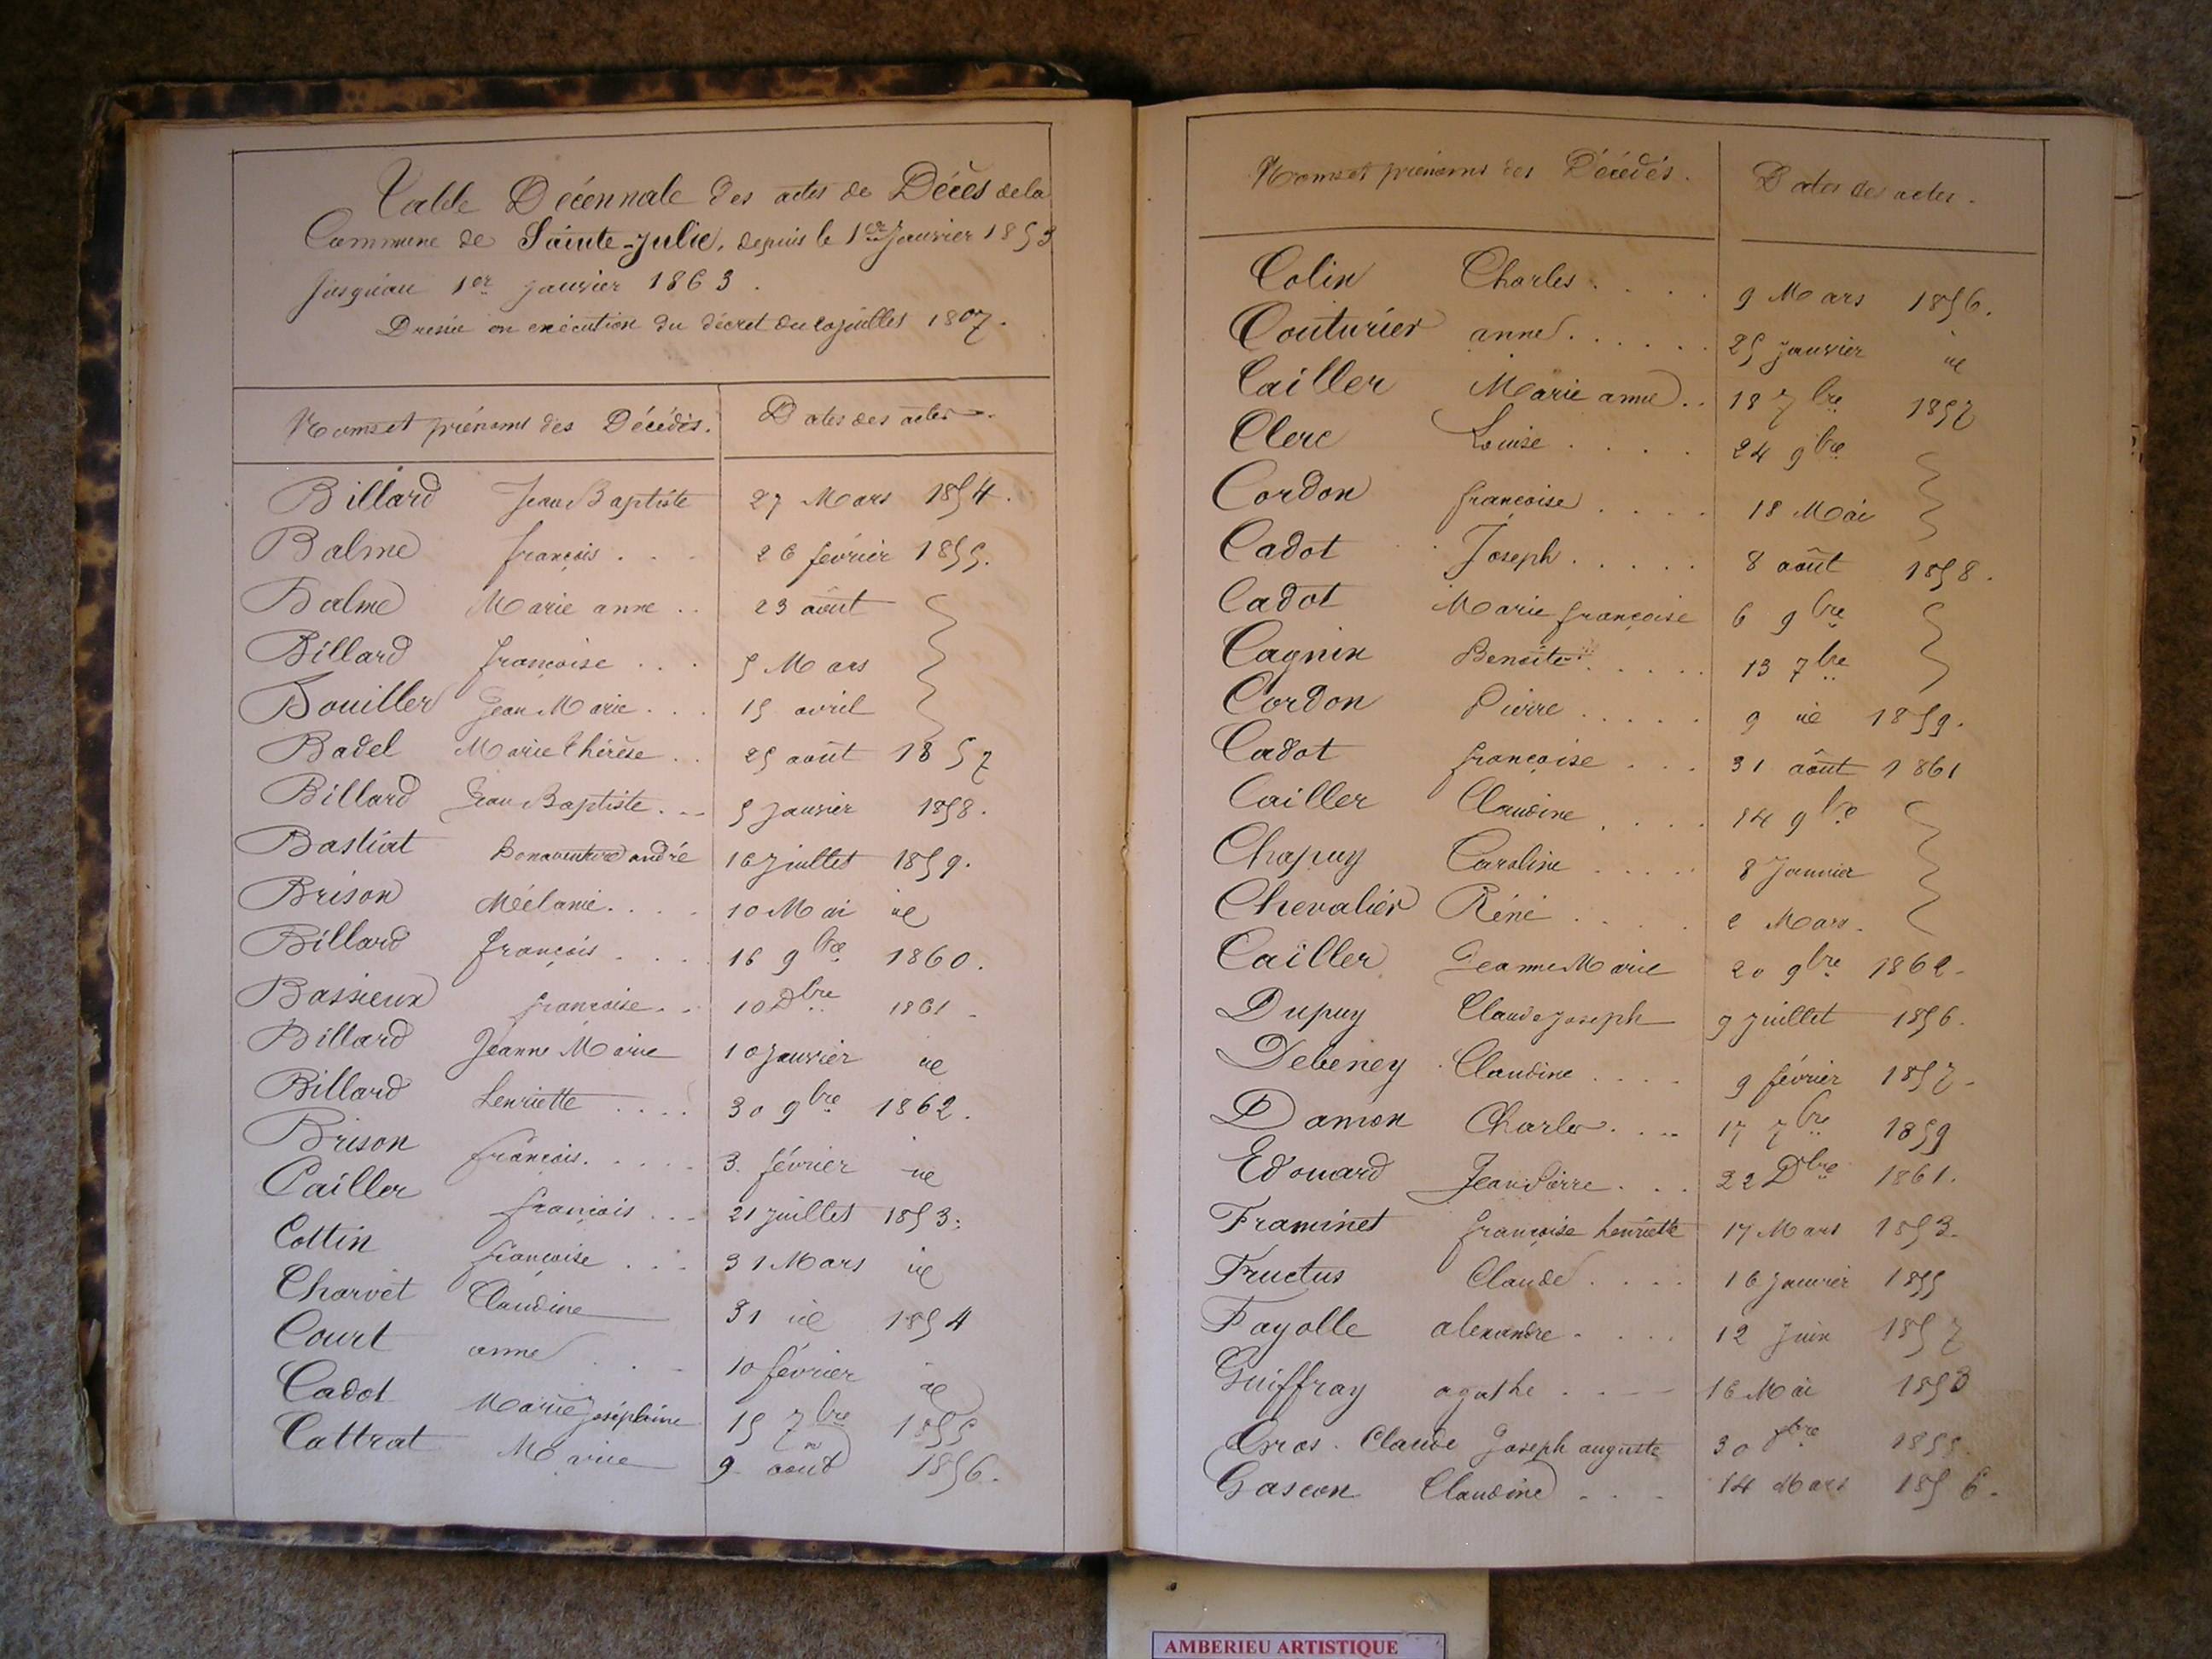 Table Décennale des actes de Décès de la
Commune de Sainte-Julie, depuis le 1er Janvier 1853
jusqu'au 1er janvier 1863.
Dressée en exécution du décret du 20 juillet 1807.
Noms et prénoms des Décédés. Dates des actes.
Billard Jean Baptiste 27 Mars 1854.
Balme françois . . . 26 février 1855.
Balme Marie anne . . 23 août
Billard françoise . . . 5 Mars
Bouiller Jean Marie . . . 15 avril
Badel Marie thérèse . . 25 août 1857
Billard Jean Baptiste . . . 5 Janvier 1858.
Bastiat Bonaventure andré 16 Juillet 1859.
Brison Mélanie . . . . 10 Mai id
Billard françois . . . . 16 9bre 1860.
Bassieux françoise . . 10 Dbre 1861
Billard Jeanne Marie 10 Janvier id
Billard henriette . . . . 30 9bre 1862.
Brison françois . . . . . 3 février id
Cailler françois . . . 21 juillet 1853.
Cottin françoise . . . 31 Mars id
Charvet Claudine 31 id 1854
Court anne . . . 10 février id
Cadot Marie Joséphine 15 7bre 1855
Cattrat Marie 9 août 1856.
Noms et prénoms des Décédés. Dates des actes.
Colin Charles . . . . 9 Mars 1856.
Couturier anne . . . . . . 25 Janvier id
Cailler Marie anne . . 18 7bre 1857
Clerc Louise . . . . 24 9bre
Cordon françoise . . . . 18 Mai
Cadot Joseph . . . . . 8 août 1858.
Cadot Marie françoise 6 9bre
Cagnin Benoite . . . . . 13 7bre
Cordon Pierre . . . . . 9 id 1859.
Cadot françoise . . . 31 août 1861
Cailler Claudine . . . . 14 9bre
Chapuy Caroline . . . . . 8 Janvier
Chevalier Réné . . . . 2 Mars.
Cailler Jeanne Marie 20 9bre 1862.
Dupuy Claude Joseph 9 juillet 1856.
Debeney Claudine . . . . 9 février 1857.
Damon Charles . . . . 17 7bre 1859
Edouard Jean Pierre . . . 22 Dbre 1861.
Framinet françoise henriette 17 Mars 1853.
Fructus Claude . . . . 16 Janvier 1855
Fayolle alexandre . . . . 12 Juin 1857
Guiffray agathe . . . 16 Mai 1853
Gros . Claude Joseph auguste 30 1855.
Gascon Claudine . . . 14 Mars 1856.
AMBERIEU ARTISTIQUE